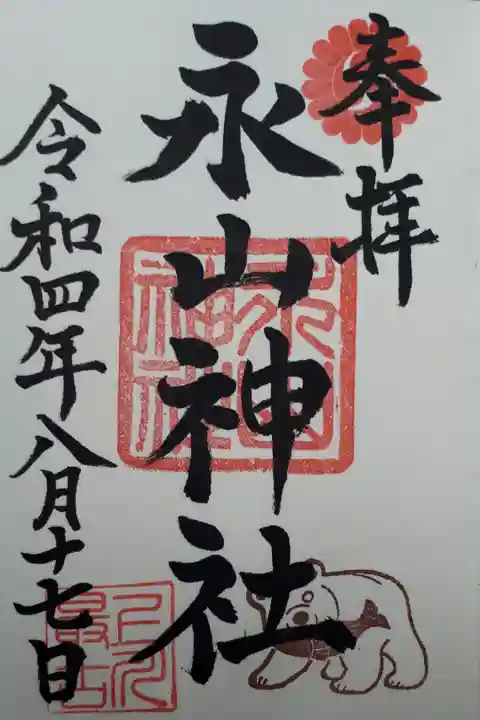 奉拝
永山神社
令和四年八月十七日
永山神社